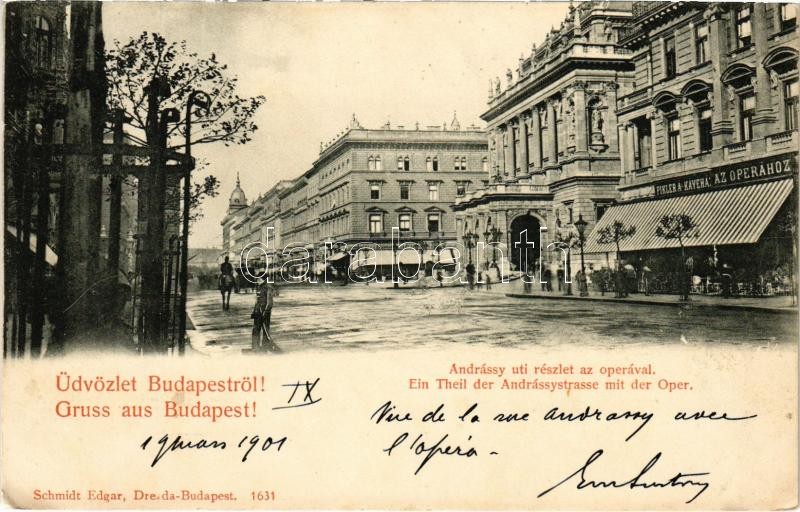 PIKLER A. KÁVÉHÁZ AZ OPERÁHOZ
darabanth
Üdvözlet Budapeströl!
Gruss aus Budapest!
IX
Andrássy uti részlet az operával.
Ein Theil der Andrássystrasse mit der Oper.
19 mars 1901
Vue de la rue Andrassy avec
l'opéra -
Schmidt Edgar, Dresda-Budapest. 1631